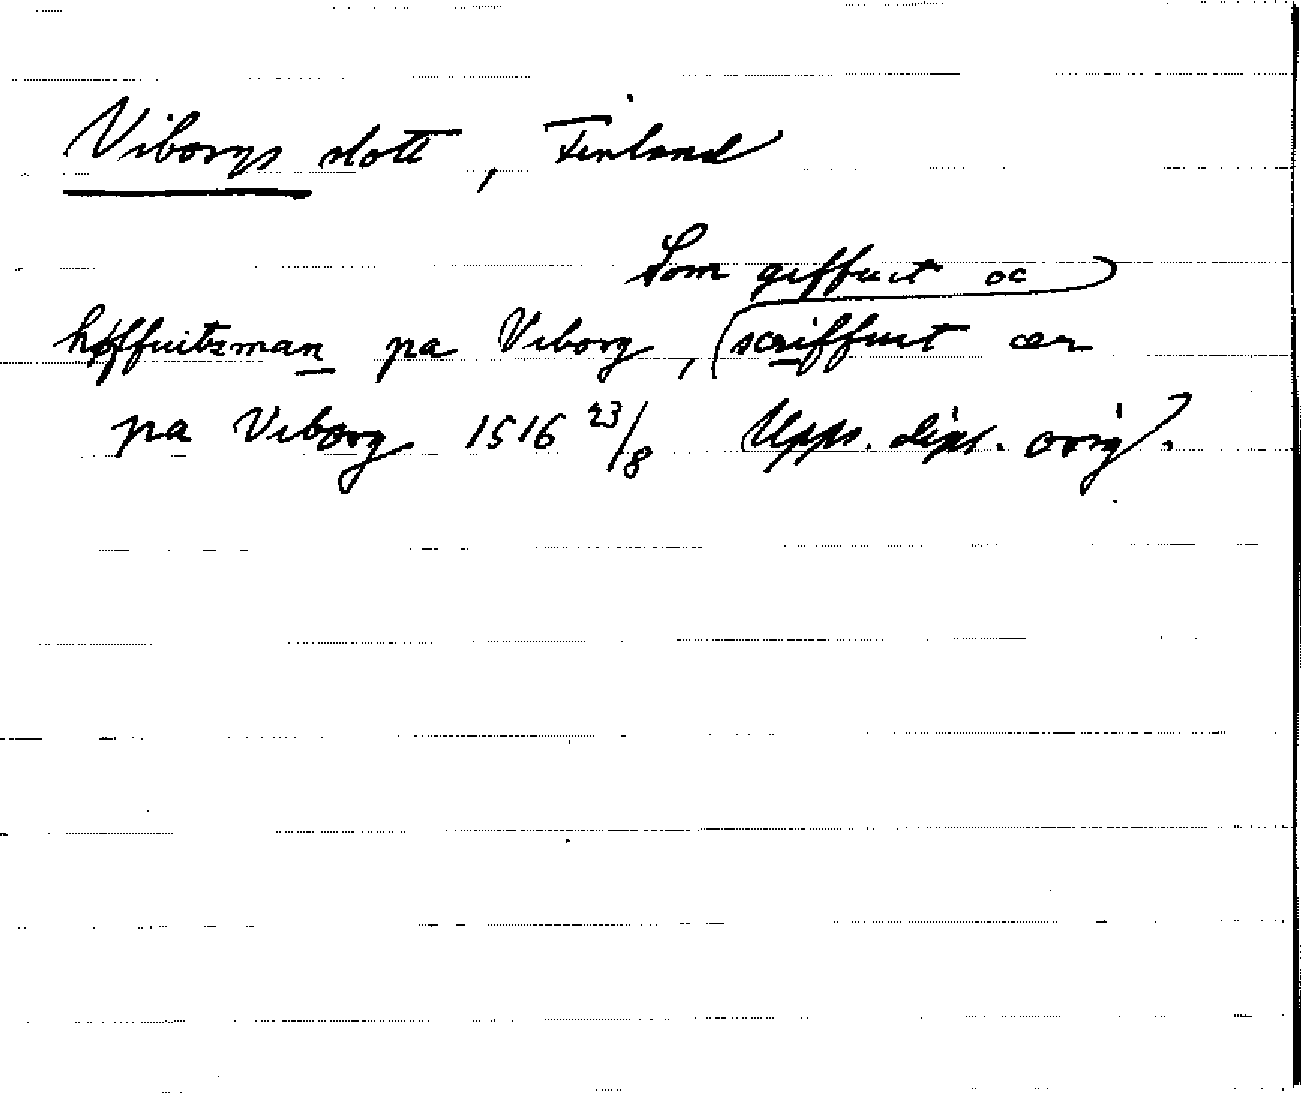 Viborgs slott, Finland
Som giffuit oc
høffuitzman pa Viborg, scriffuit ær
pa Viborg 1516 23/8 Upps. dipl. orig.